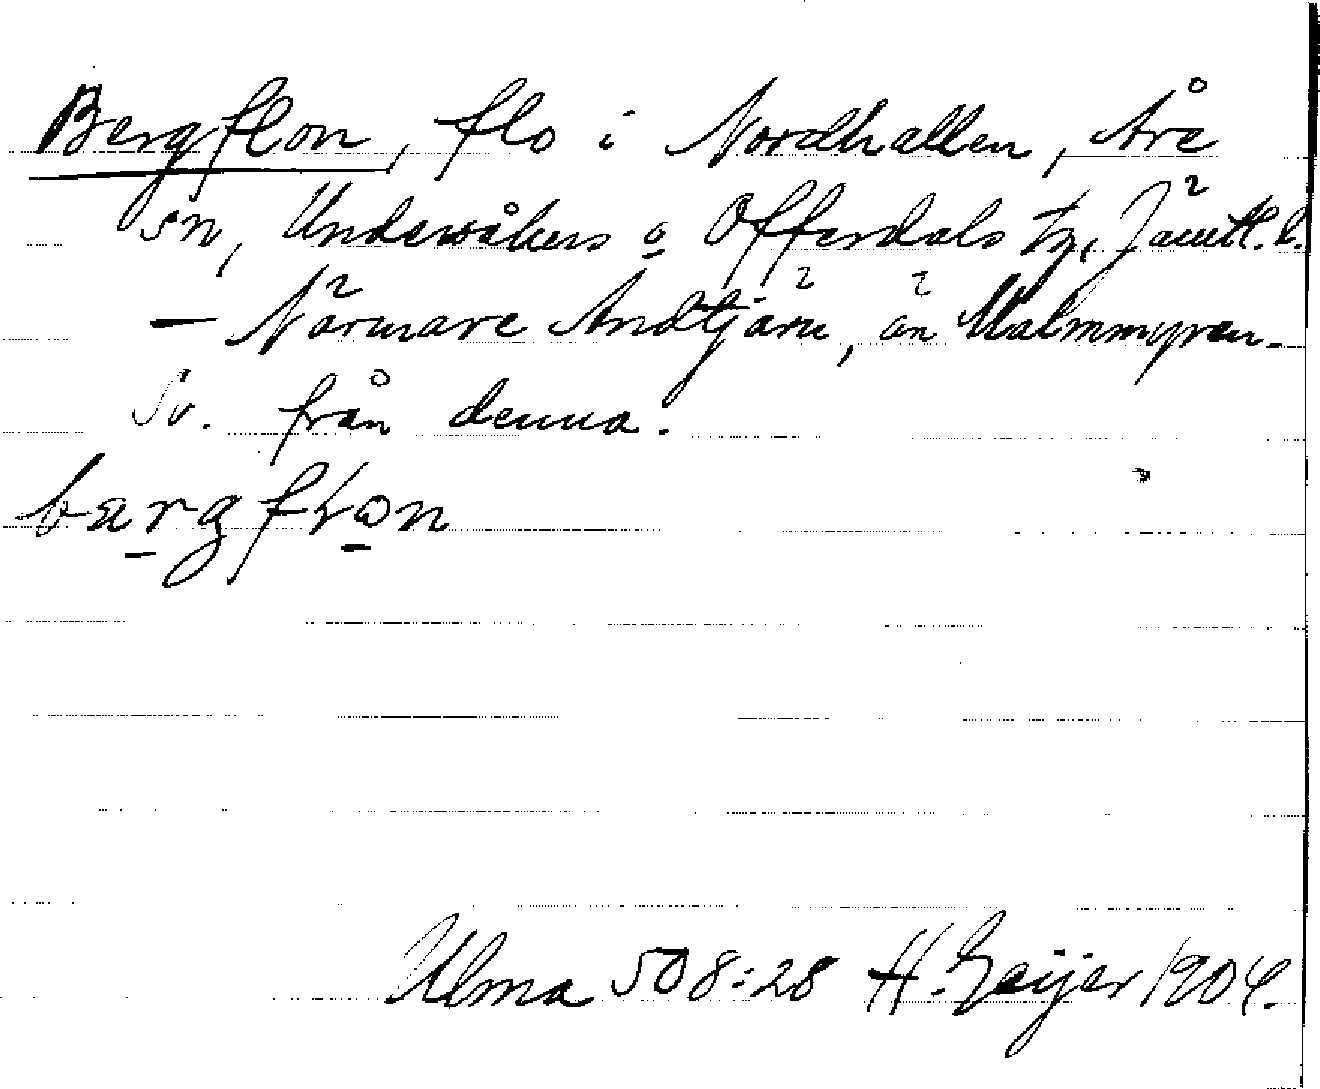 Bergflon, flo i Nordhallen, Åre
sn, Undersåkers o Offerdals tg, Jämtl. l.
— Närmare Andtjärn, än Malmmyren.
Sv. från denna.
bargflon
Ulma 508:28 H. Geijer 1904.